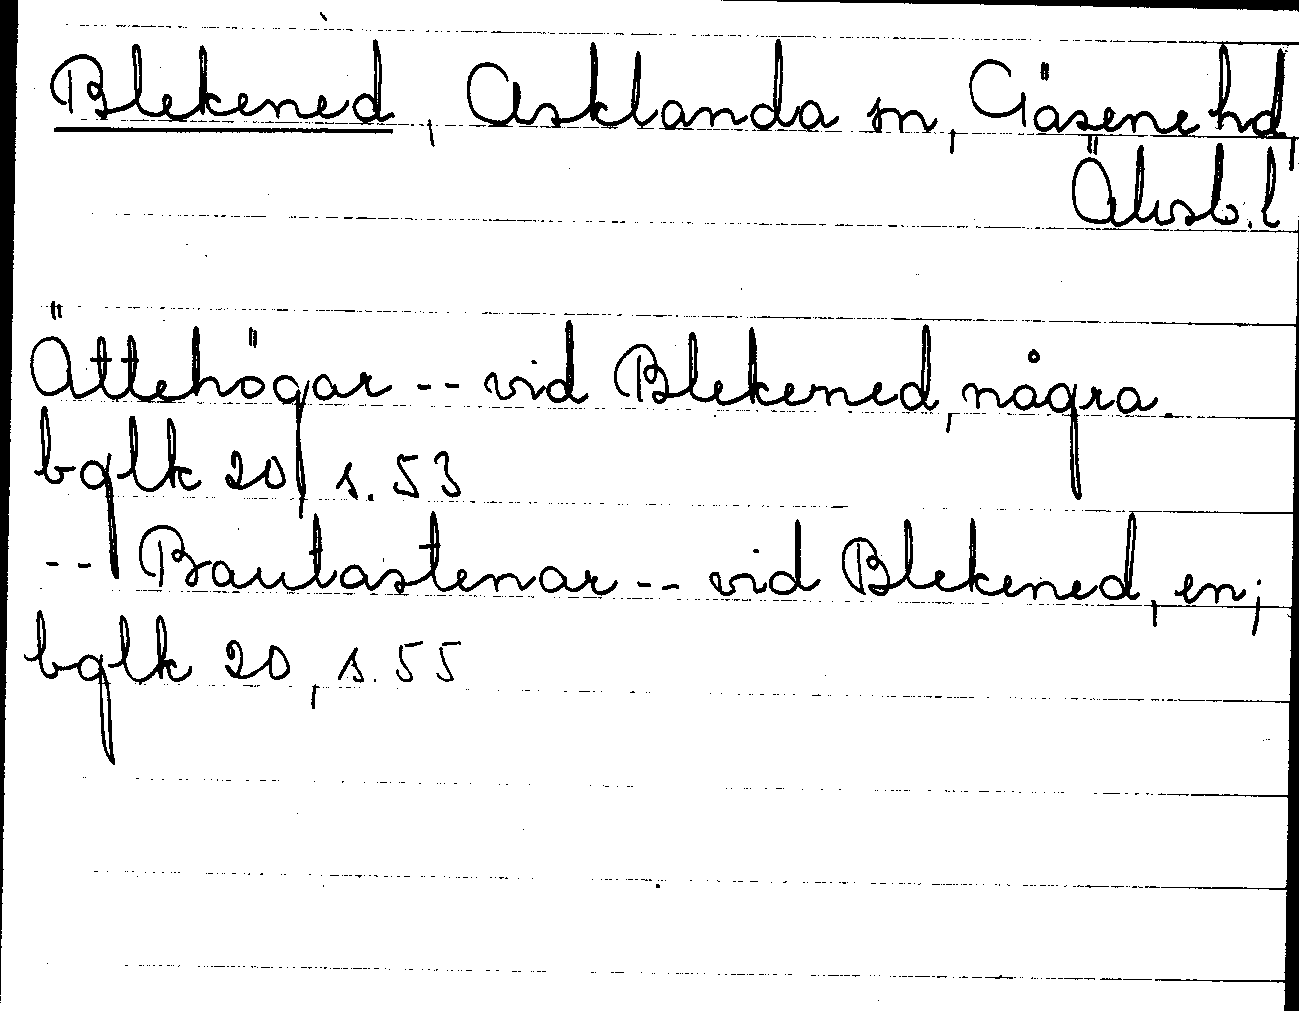 Blekened, Asklanda sn, Gäsene hd,
Älvsb. l
Ättehögar -- vid Blekened, några.
bglk 20, s. 53
-- Bautastenar -- vid Blekened, en;
bglk 20, s. 55